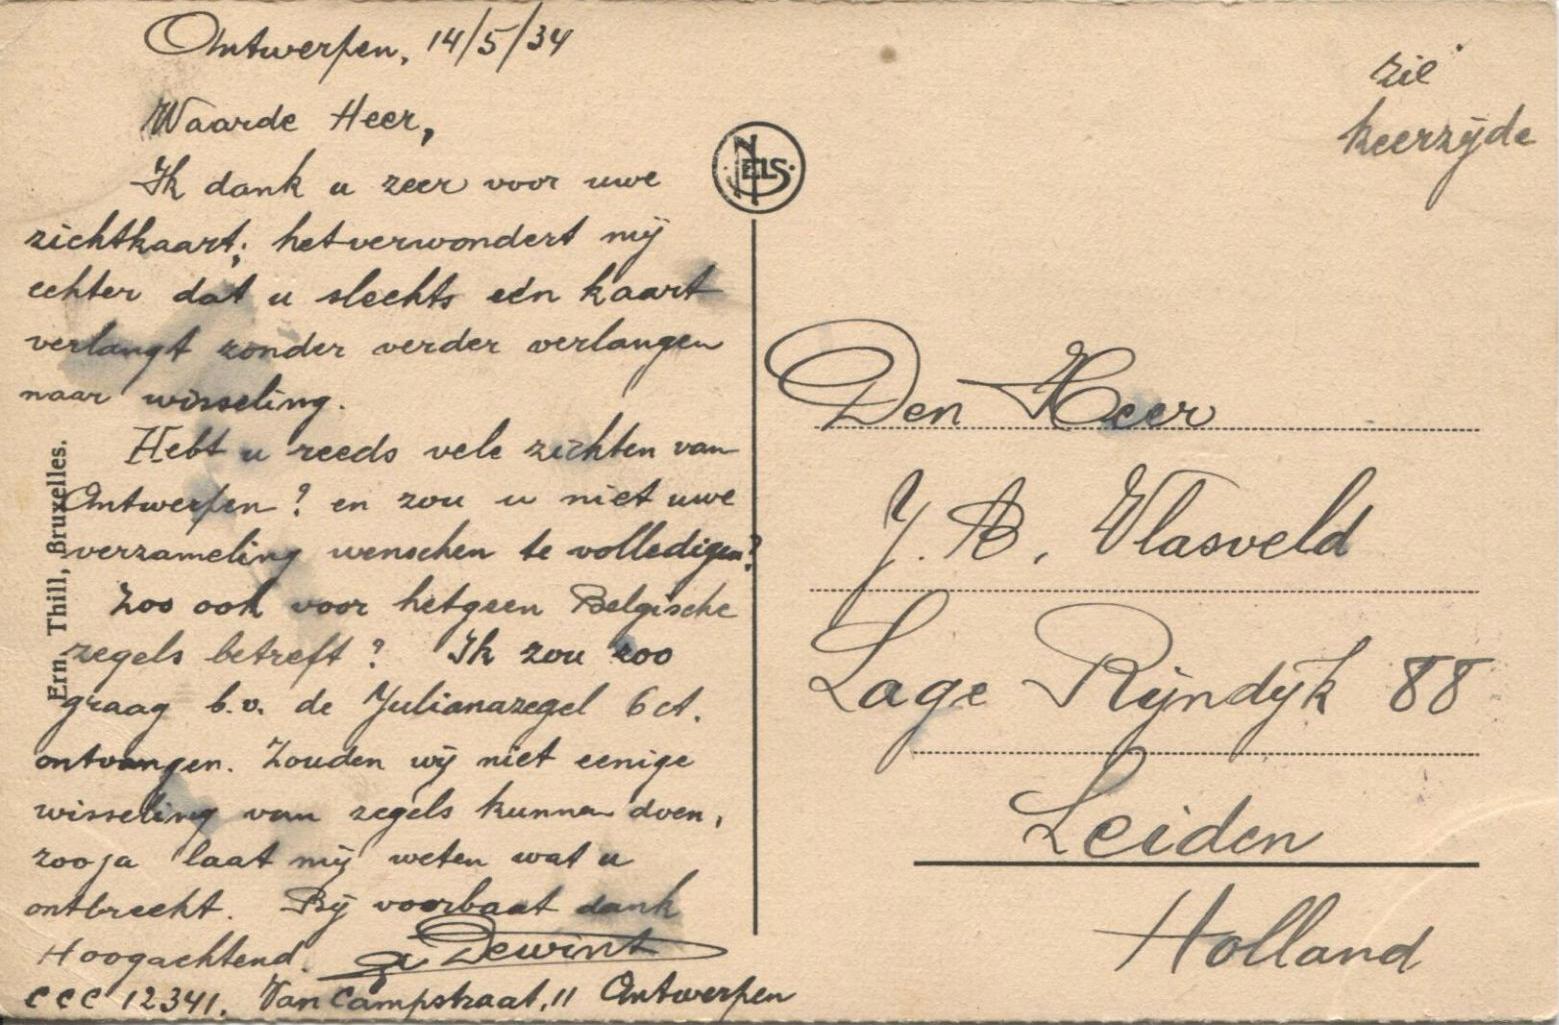 Antwerpen, 14/5/34
Waarde Heer,
Ik dank u zeer voor uwe
zichtkaart; het verwondert mij
echter dat u slechts eén kaart
verlangt zonder verder verlangen
naar wisseling.
Hebt u reeds vele zichten van
Antwerpen? en zou u niet uwe
verzameling wenschen te volledigen?
Zoo ook voor hetgeen Belgische
zegels betreft? Ik zou zoo
graag b.v. de Julianazegel 6 ct.
ontvangen. Zouden wij niet eenige
wisseling van zegels kunnen doen,
zoo ja laat mij weten wat u
ontbreekt. Bij voorbaat dank
Hoogachtend. Dewint
CCC 12341. Van Campstraat, 11 Antwerpen
Ern. Thill, Bruxelles.
NELS
zie
keerzijde
Den Heer
J. B. Vlasveld
Lage Rijndijk 88
Leiden
Holland